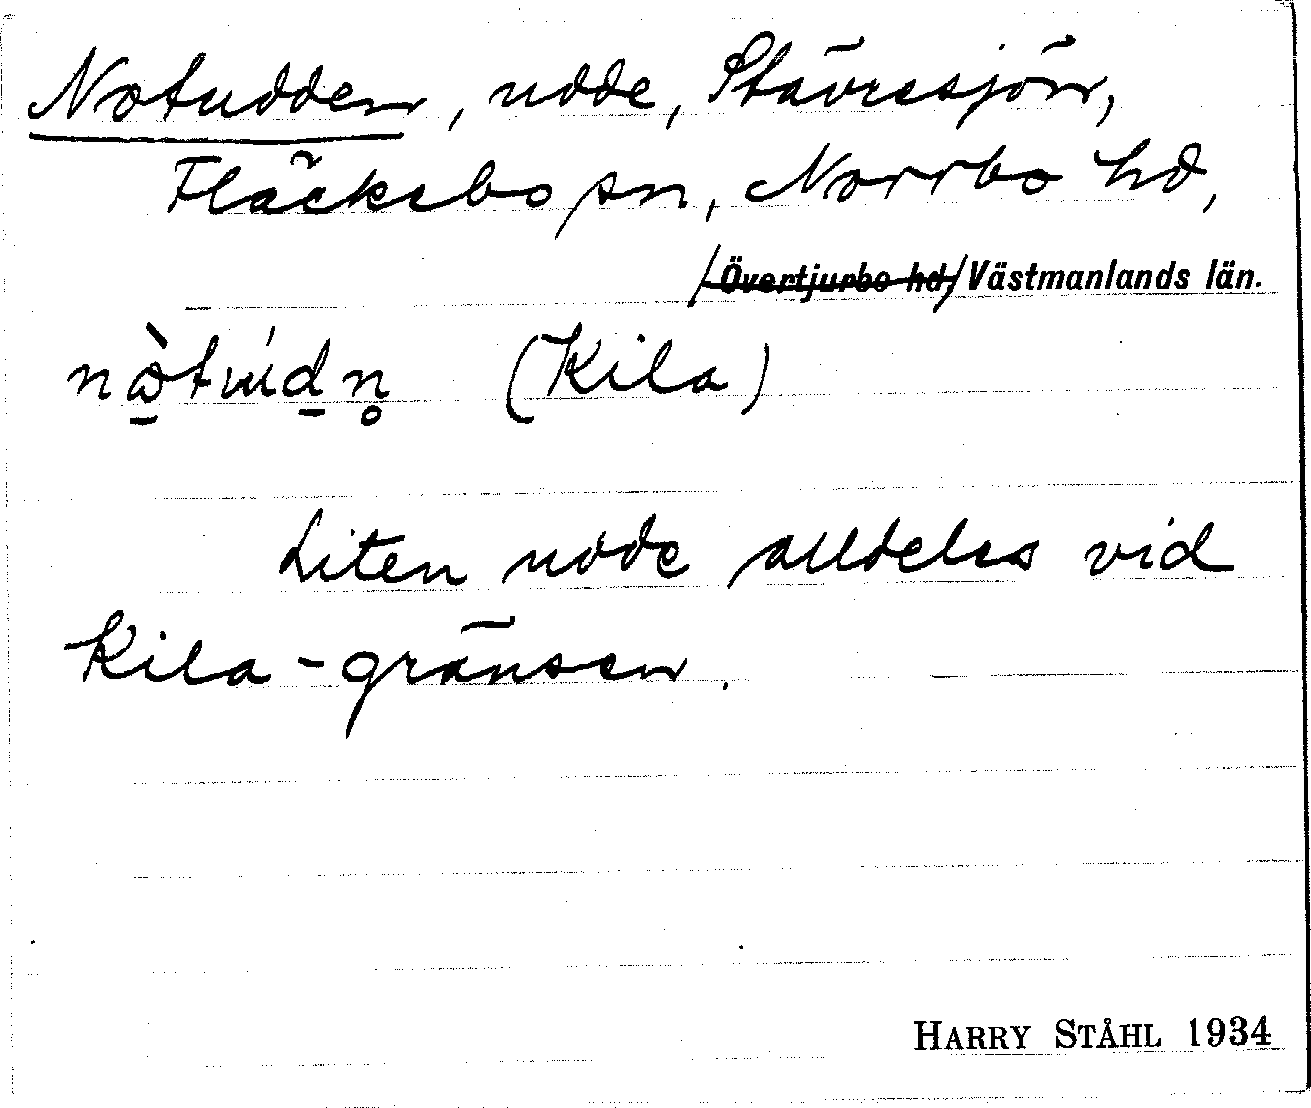 Notudden, udde, Stävresjön,
Fläckebo sn, Norrbo hd,
/Övertjurbo hd,/ Västmanlands län.
(Kila)
Liten udde alldeles vid
Kila-gränsen.
HARRY STÅHL 1934